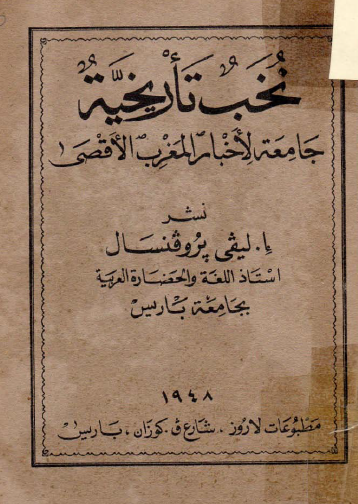 نُخَبٌ تَأْرِيخِيَّةٌ
جَامِعَة لِأَخْبَار المَغْرِب الأَقْصَى
نشر
إ. ليڤى پروڤنسال
استاذ اللغة والحضارة العربية
بجامعة باريس
١٩٤٨
مطبوعات لاروز ، شارع ڤ. كوزان ، باريس